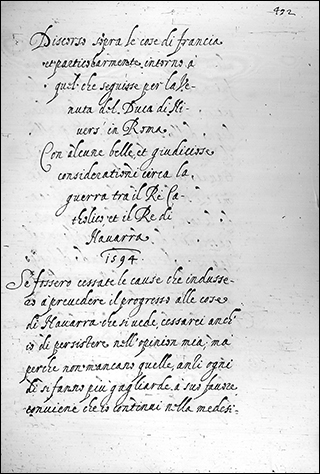 472
Discorso sopra le cose di francia
et particolarmente intorno à
quel che seguisse per la Ve-
nuta del Duca di Ni-
vers in Roma
Con alcune belle, et giudiciose
considerationi circa la
guerra tra il Rè Ca-
tholico et il Re di
Navarra
1594
Se fossero cessate le cause che indusse-
ro à prevedere il progresso alle cose
di Navarra che si vede, cessarei anch'
io di persistere nell'opinion mia; ma
perche non mancano quelle, anzi ogni
di si fanno più gagliarde à suo favore
conviene che io continui nella medesi-